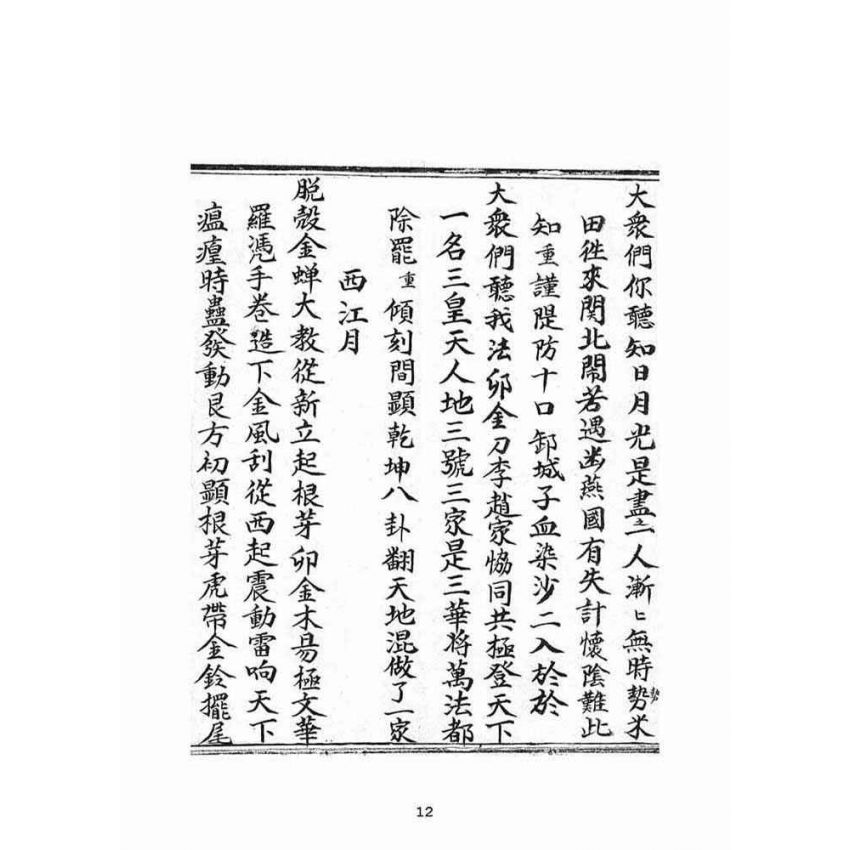 大衆們你聽知日月光是盡之一人漸〻無時势米
田徃來関北閙若遇幽燕國有失計懷陰難此
知重謹隄防十口卸城子血染沙二入於於
大衆們聽我法卯金刀李趙家恊同共極登天下
一名三皇天人地三號三家是三華將萬法都
除罷重傾刻間顯乾坤八卦翻天地混做了一家
西江月
脱殼金蝉大教從新立起根芽卯金木昜極文華
羅凴手巻造下金風刮從西起震動雷响天下
瘟㾮時蠱發動艮方初顯根芽虎帶金鈴擺尾
12